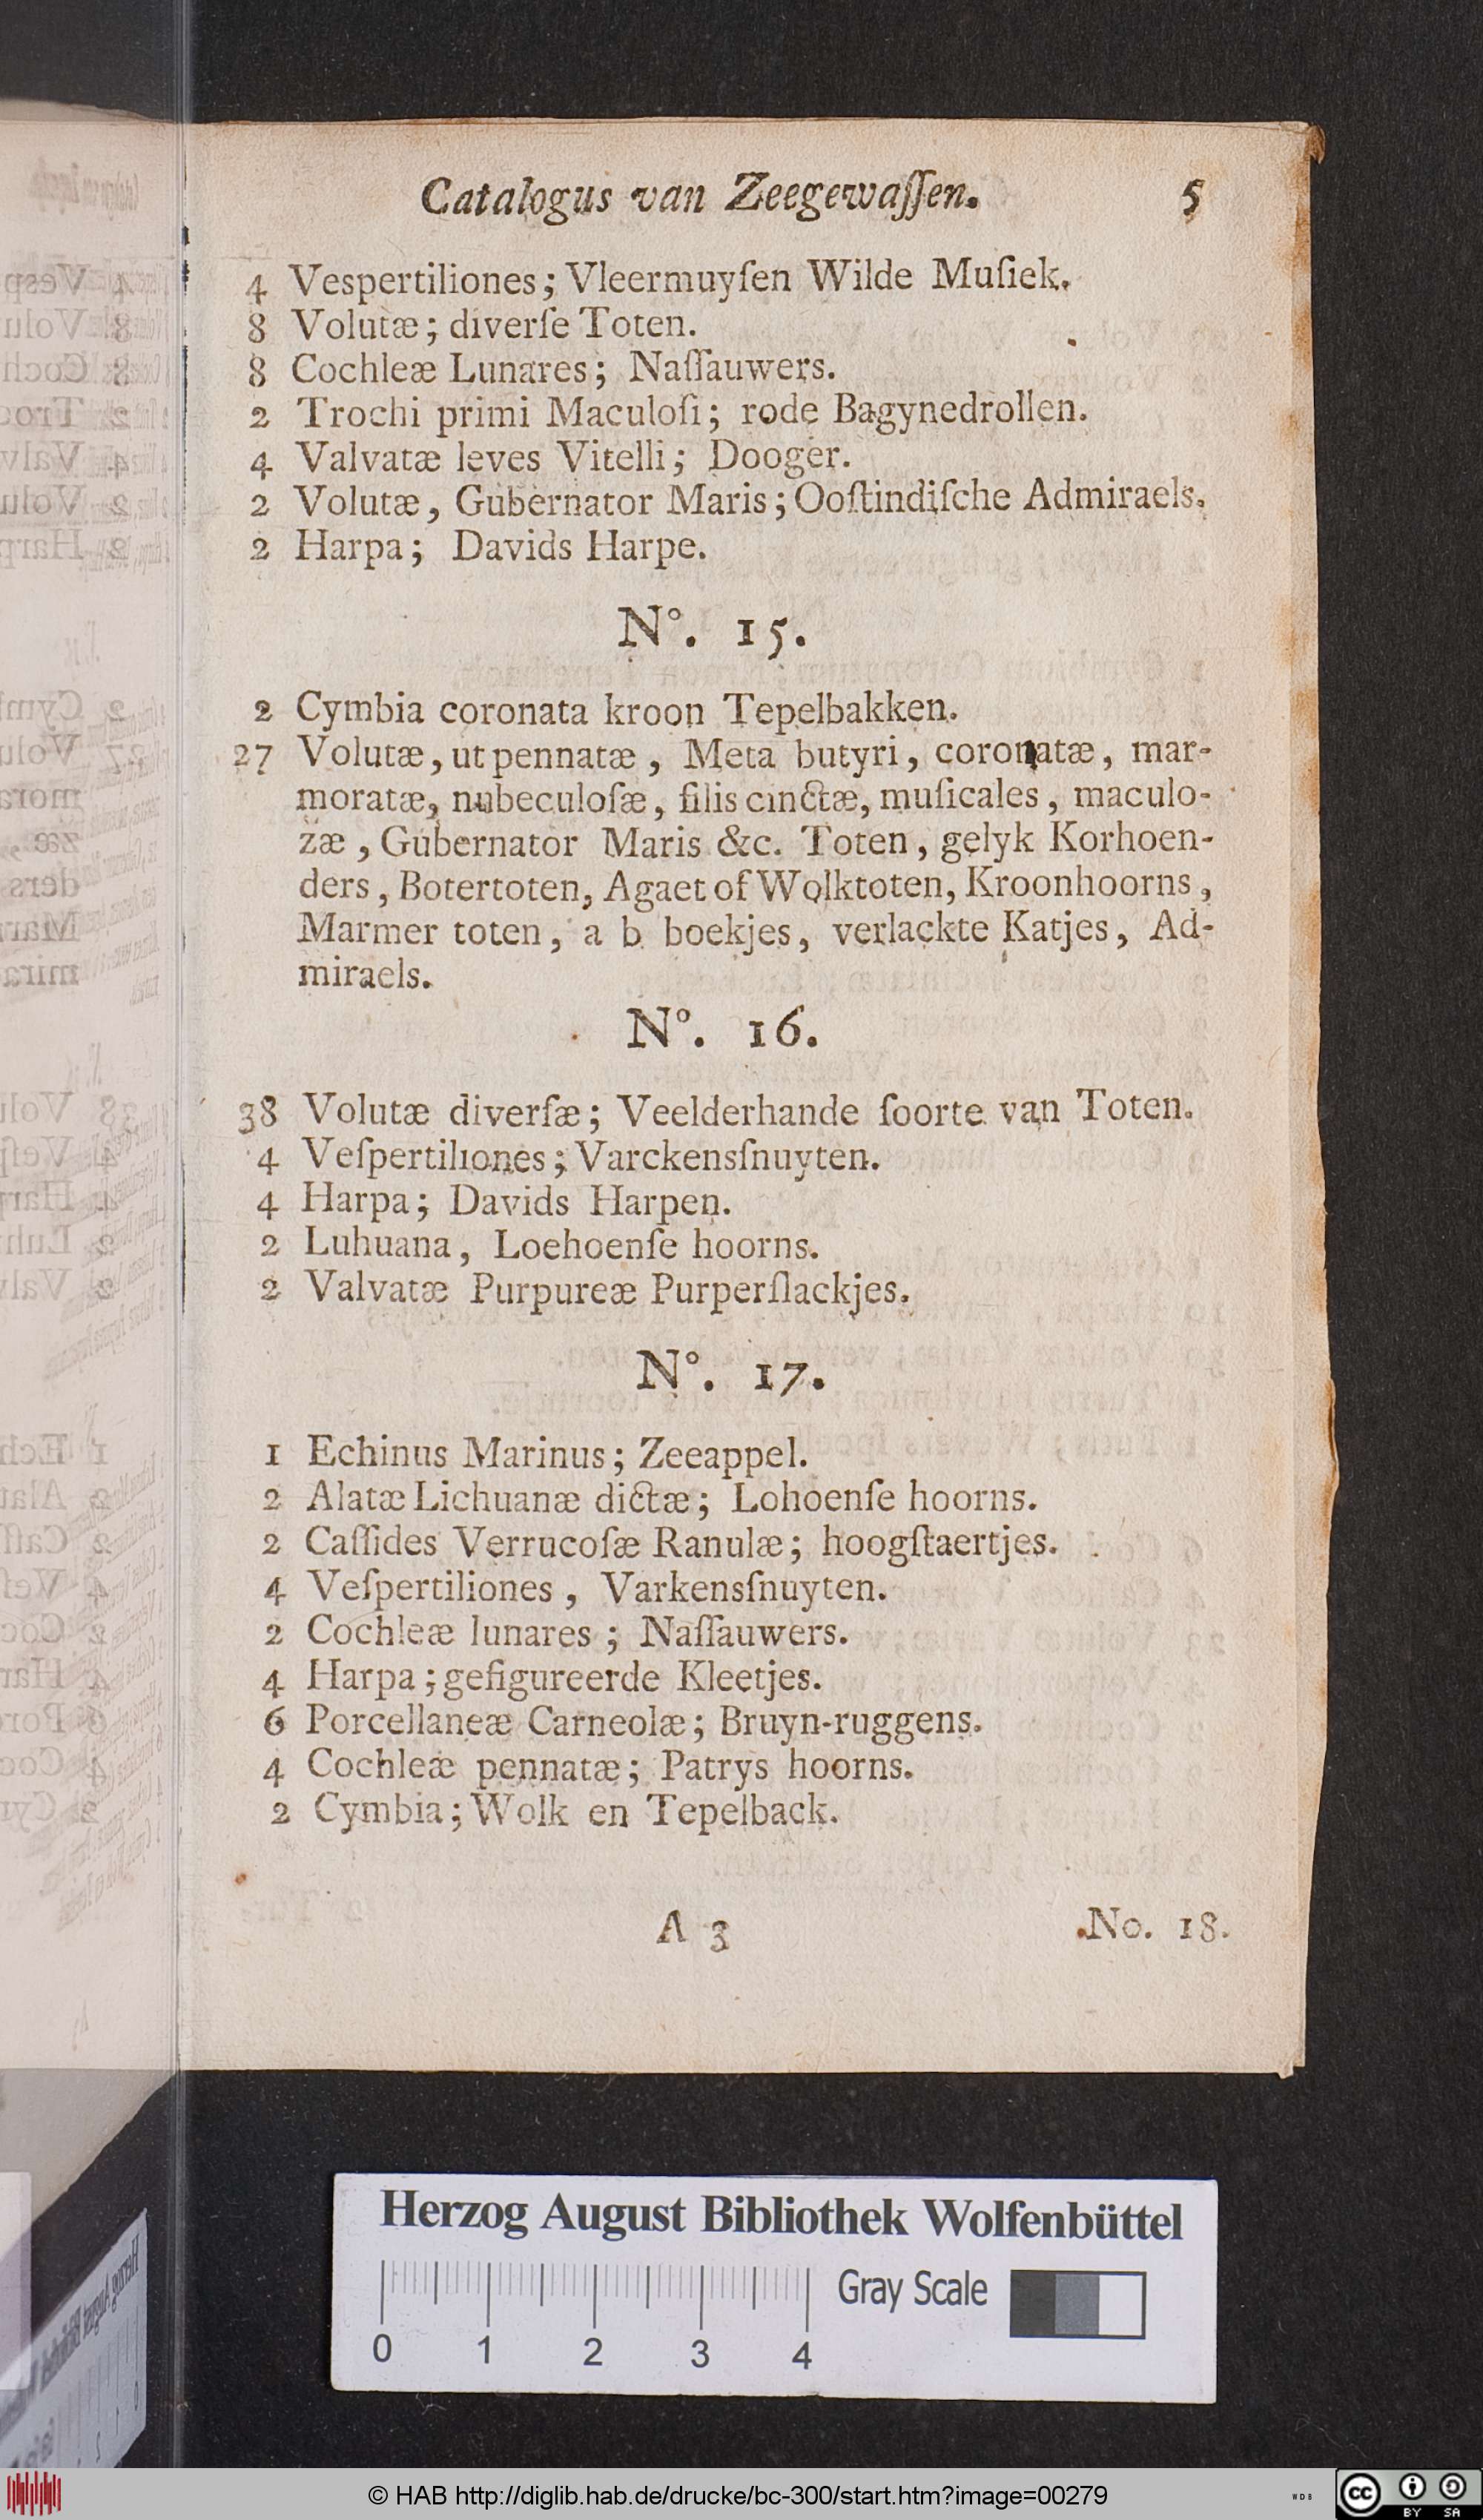 Catalogus van Zeegewaſſen. 5
4 Vespertiliones; Vleermuyſen Wilde Muſiek.
8 Volutæ; diverſe Toten.
8 Cochleæ Lunares; Naſſauwers.
2 Trochi primi Maculoſi; rode Bagynedrollen.
4 Valvatæ leves Vitelli; Dooger.
2 Volutæ, Gubernator Maris; Ooſtindiſche Admiraels.
2 Harpa; Davids Harpe.
N°. 15.
2 Cymbia coronata kroon Tepelbakken.
27 Volutæ, ut pennatæ, Meta butyri, coronatæ, mar-
moratæ, nubeculoſæ, filis cinctæ, muſicales, maculo-
zæ, Gubernator Maris &c. Toten, gelyk Korhoen-
ders, Botertoten, Agaet of Wolktoten, Kroonhoorns,
Marmer toten, a b boekjes, verlackte Katjes, Ad-
miraels.
N°. 16.
38 Volutæ diverſæ; Veelderhande ſoorte van Toten.
4 Veſpertiliones; Varckensſnuyten.
4 Harpa; Davids Harpen.
2 Luhuana, Loehoenſe hoorns.
2 Valvatæ Purpureæ Purperſlackjes.
N°. 17.
1 Echinus Marinus; Zeeappel.
2 Alatæ Lichuanæ dictæ; Lohoenſe hoorns.
2 Caſſides Verrucoſæ Ranulæ; hoogſtaertjes.
4 Veſpertiliones, Varkensſnuyten.
2 Cochleæ lunares; Naſſauwers.
4 Harpa; gefigureerde Kleetjes.
6 Porcellaneæ Carneolæ; Bruyn-ruggens.
4 Cochleæ pennatæ; Patrys hoorns.
2 Cymbia; Wolk en Tepelback.
A 3 No. 18.
Herzog August Bibliothek Wolfenbüttel
Gray Scale
0 1 2 3 4
© HAB http://diglib.hab.de/drucke/bc-300/start.htm?image=00279
WDB
cc BY SA